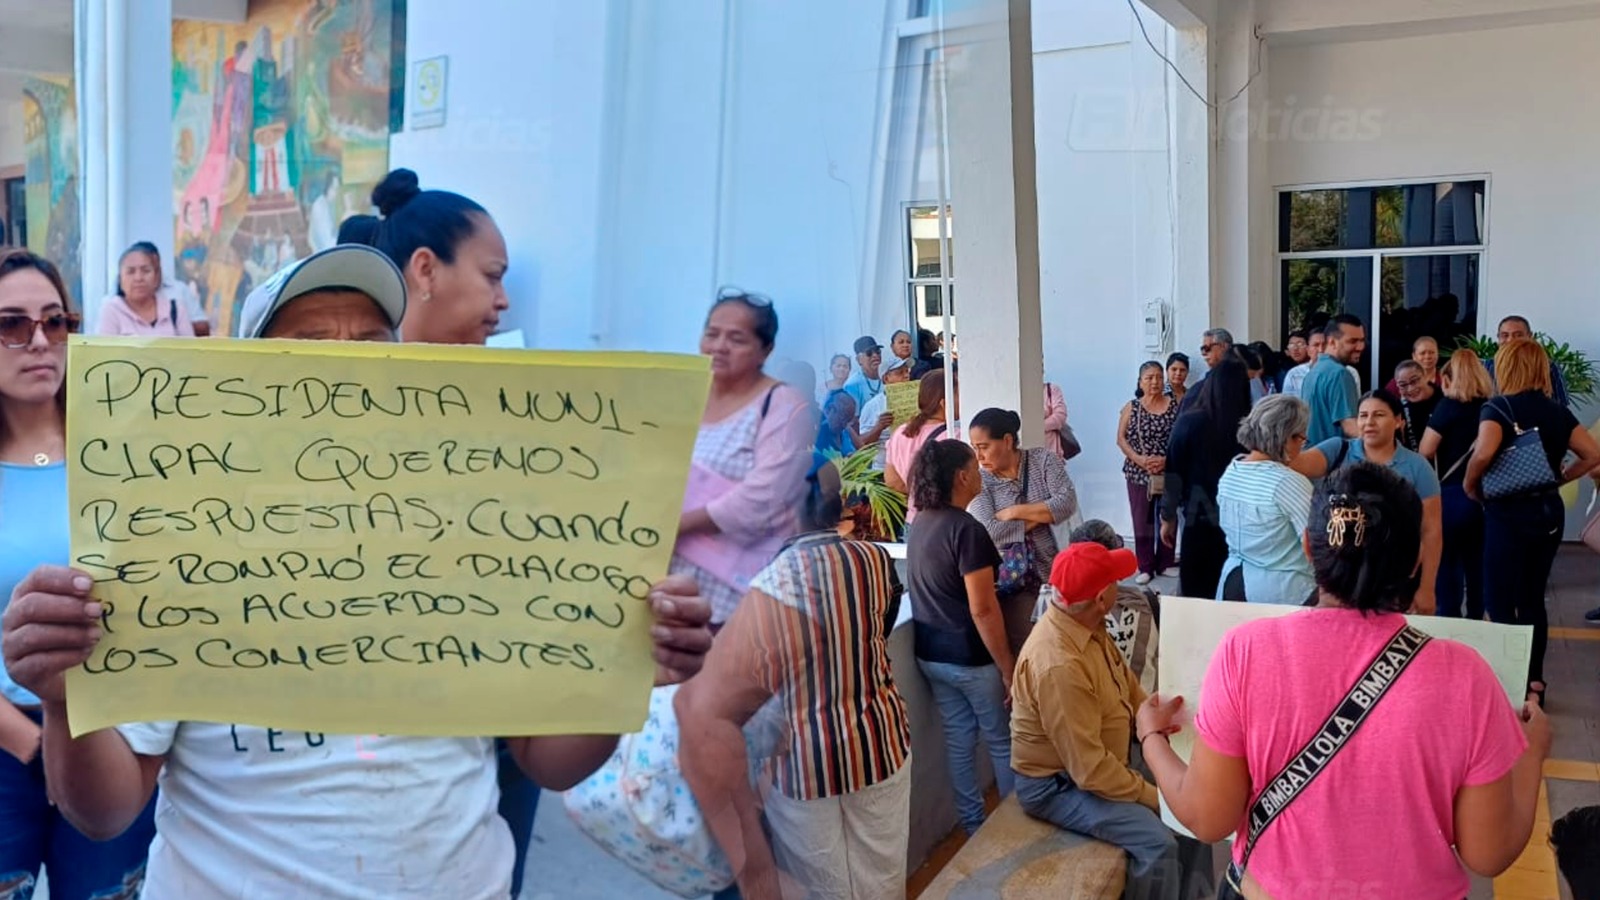 PRESIDENTA MUNI-
CIPAL QUEREMOS
RESPUESTAS; CUANDO
SE ROMPIÓ EL DIALOGO
Y LOS ACUERDOS CON
LOS COMERCIANTES.
LEO
Noticias
Noticias
LOLA BIMBAY LOLA BIMBAY